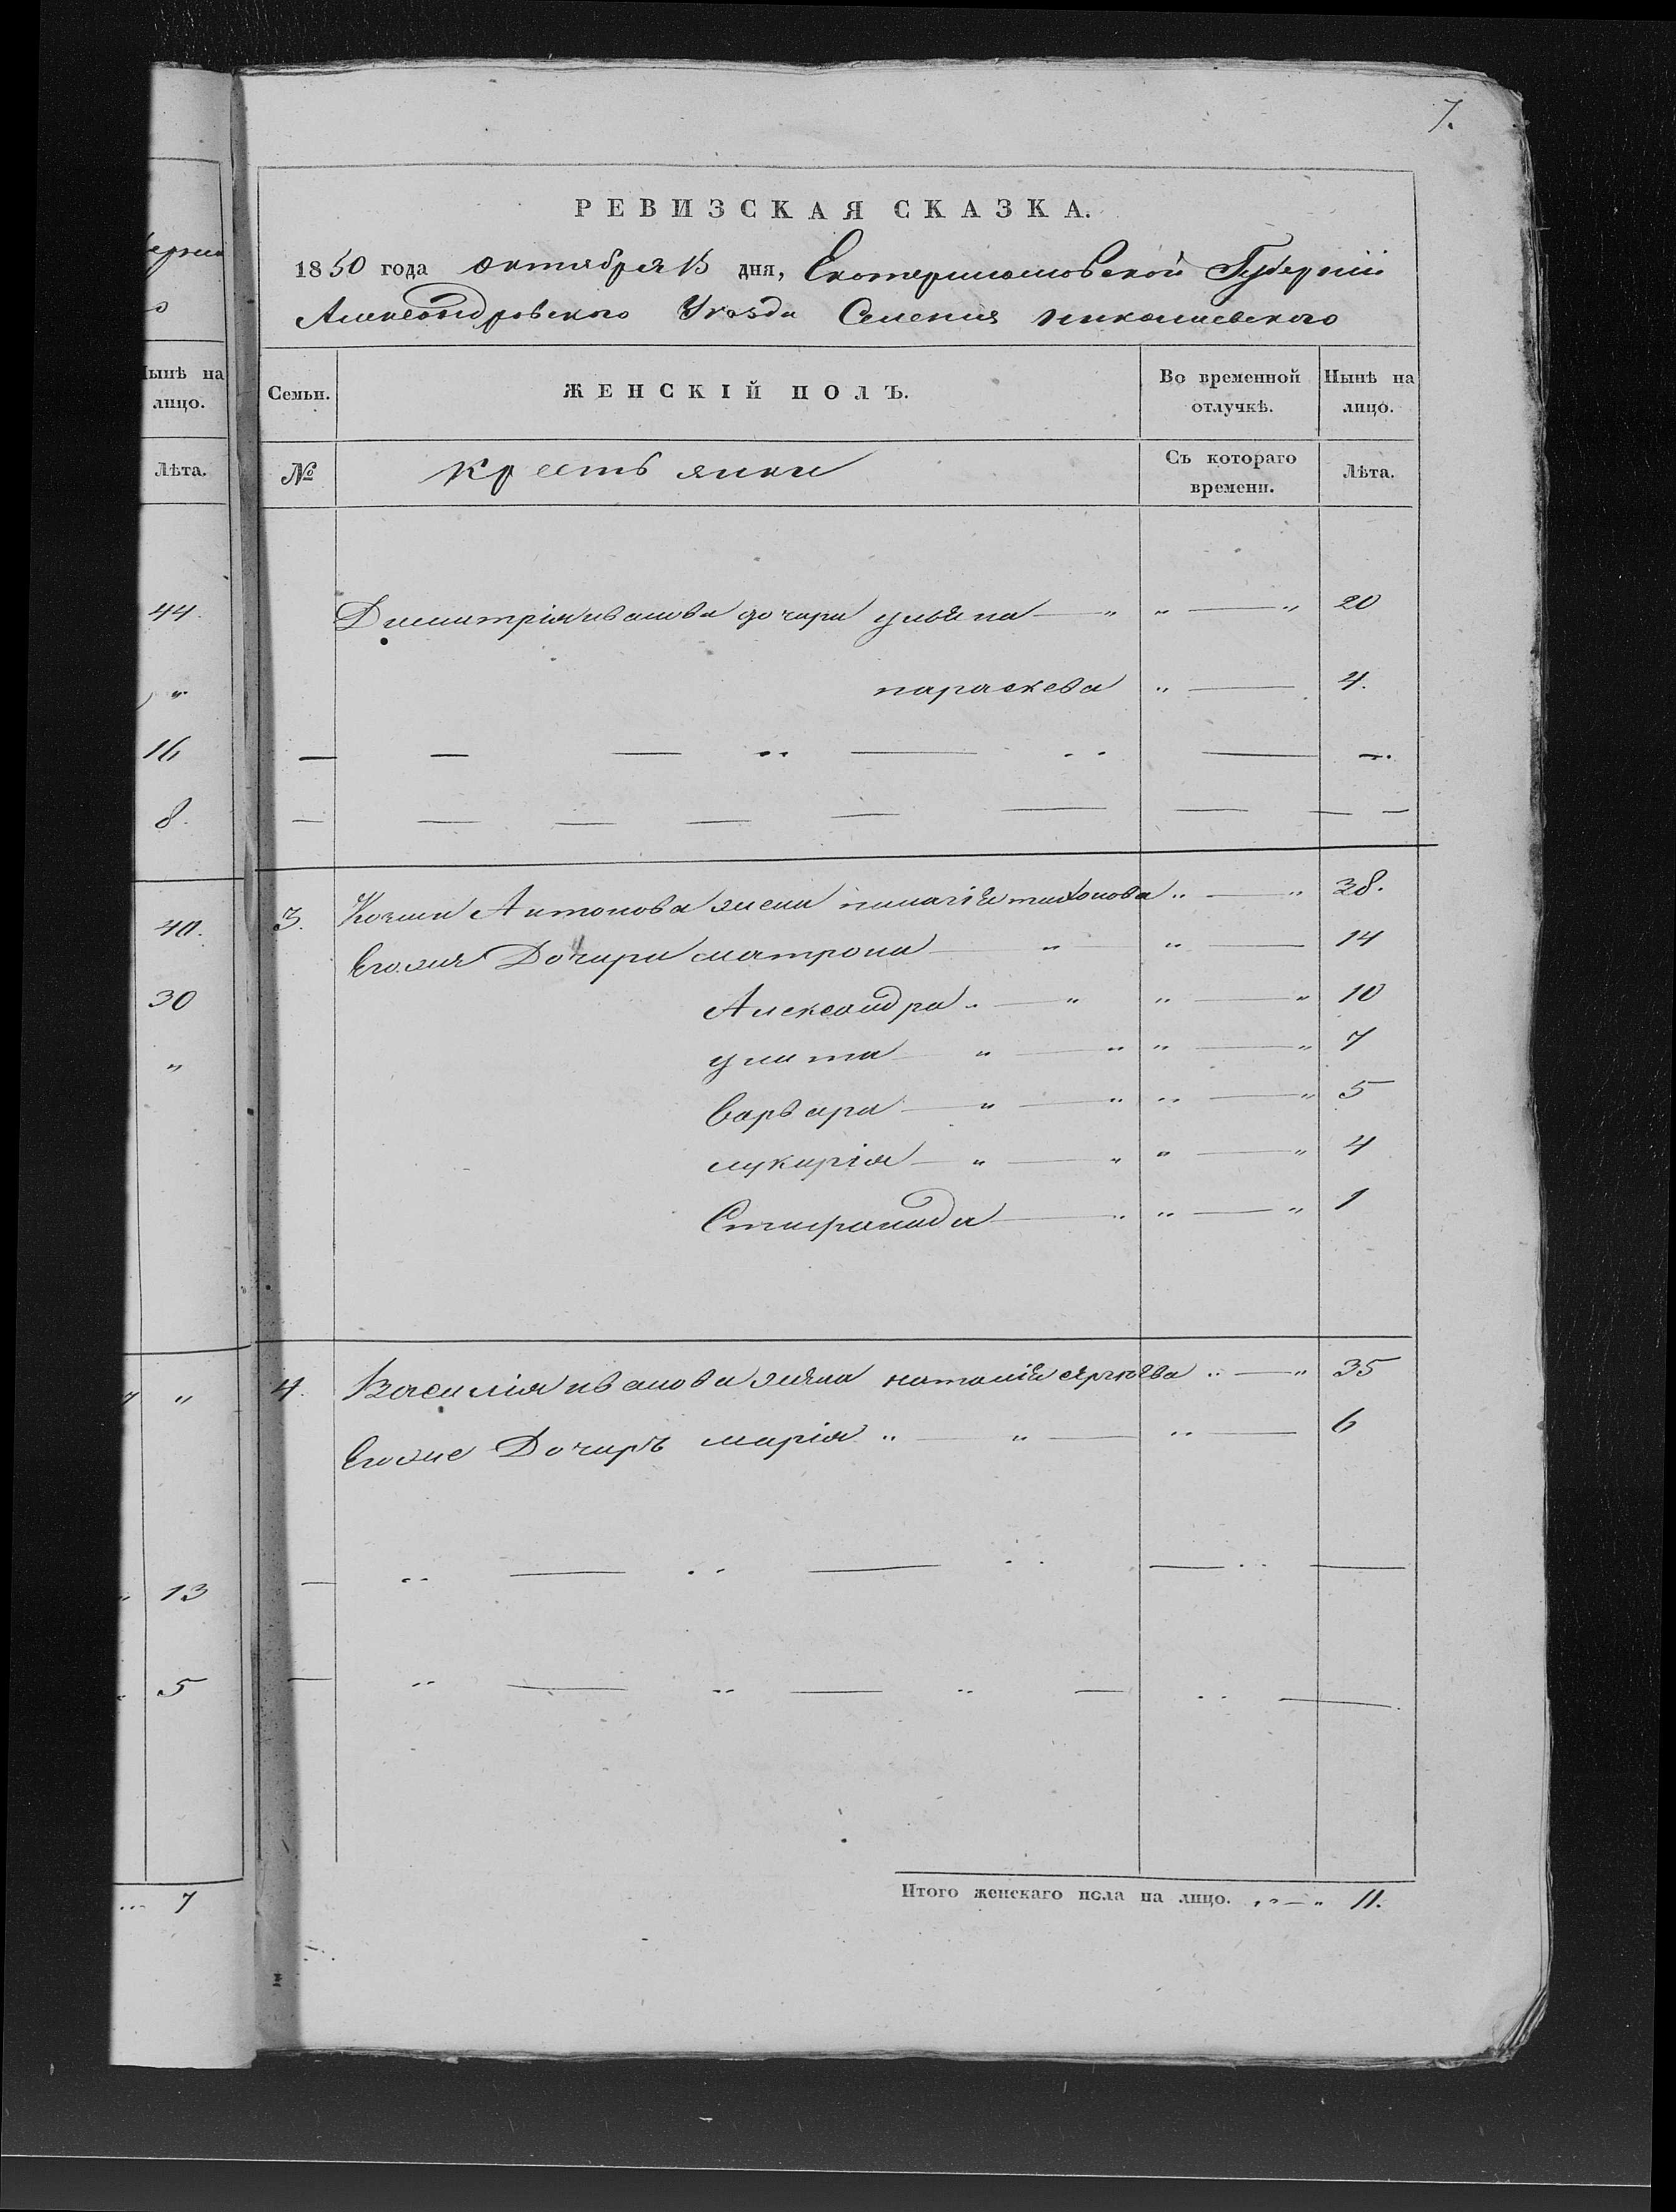 7.
РЕВИЗСКАЯ СКАЗКА.
1850 года октября 15 дня, Екатеринославской Губернии
Александровского Уезда Селения николаевского
Семьи. ЖЕНСКІЙ ПОЛЪ. Во временной отлучкѣ. Нынѣ на лицо.
№ крестьянки Съ котораго времени. Лѣта.
Димитрія иванова дочери ульяна — „ „ — „ 20
параскева „ — 4.
3. Козми Антонова жена пилагія тихонова „ — „ 38.
Егожия Дочери матрона — „ — „ — 14
Александра „ — „ „ — „ 10
улита — „ — „ „ — „ 7
варвара — „ — „ „ — „ 5
лукирія — „ — „ „ — „ 4
Стиранида — „ „ — „ 1
4. Василія иванова жена наталія сергеева „ — „ 35
Егоже Дочиръ марія „ — „ — „ — 6
Итого женскаго пола на лицо. „ — „ 11.
ернии
Нынѣ на
лицо.
Лѣта.
44.
„
16
8.
40.
30
„
„
13
5
7